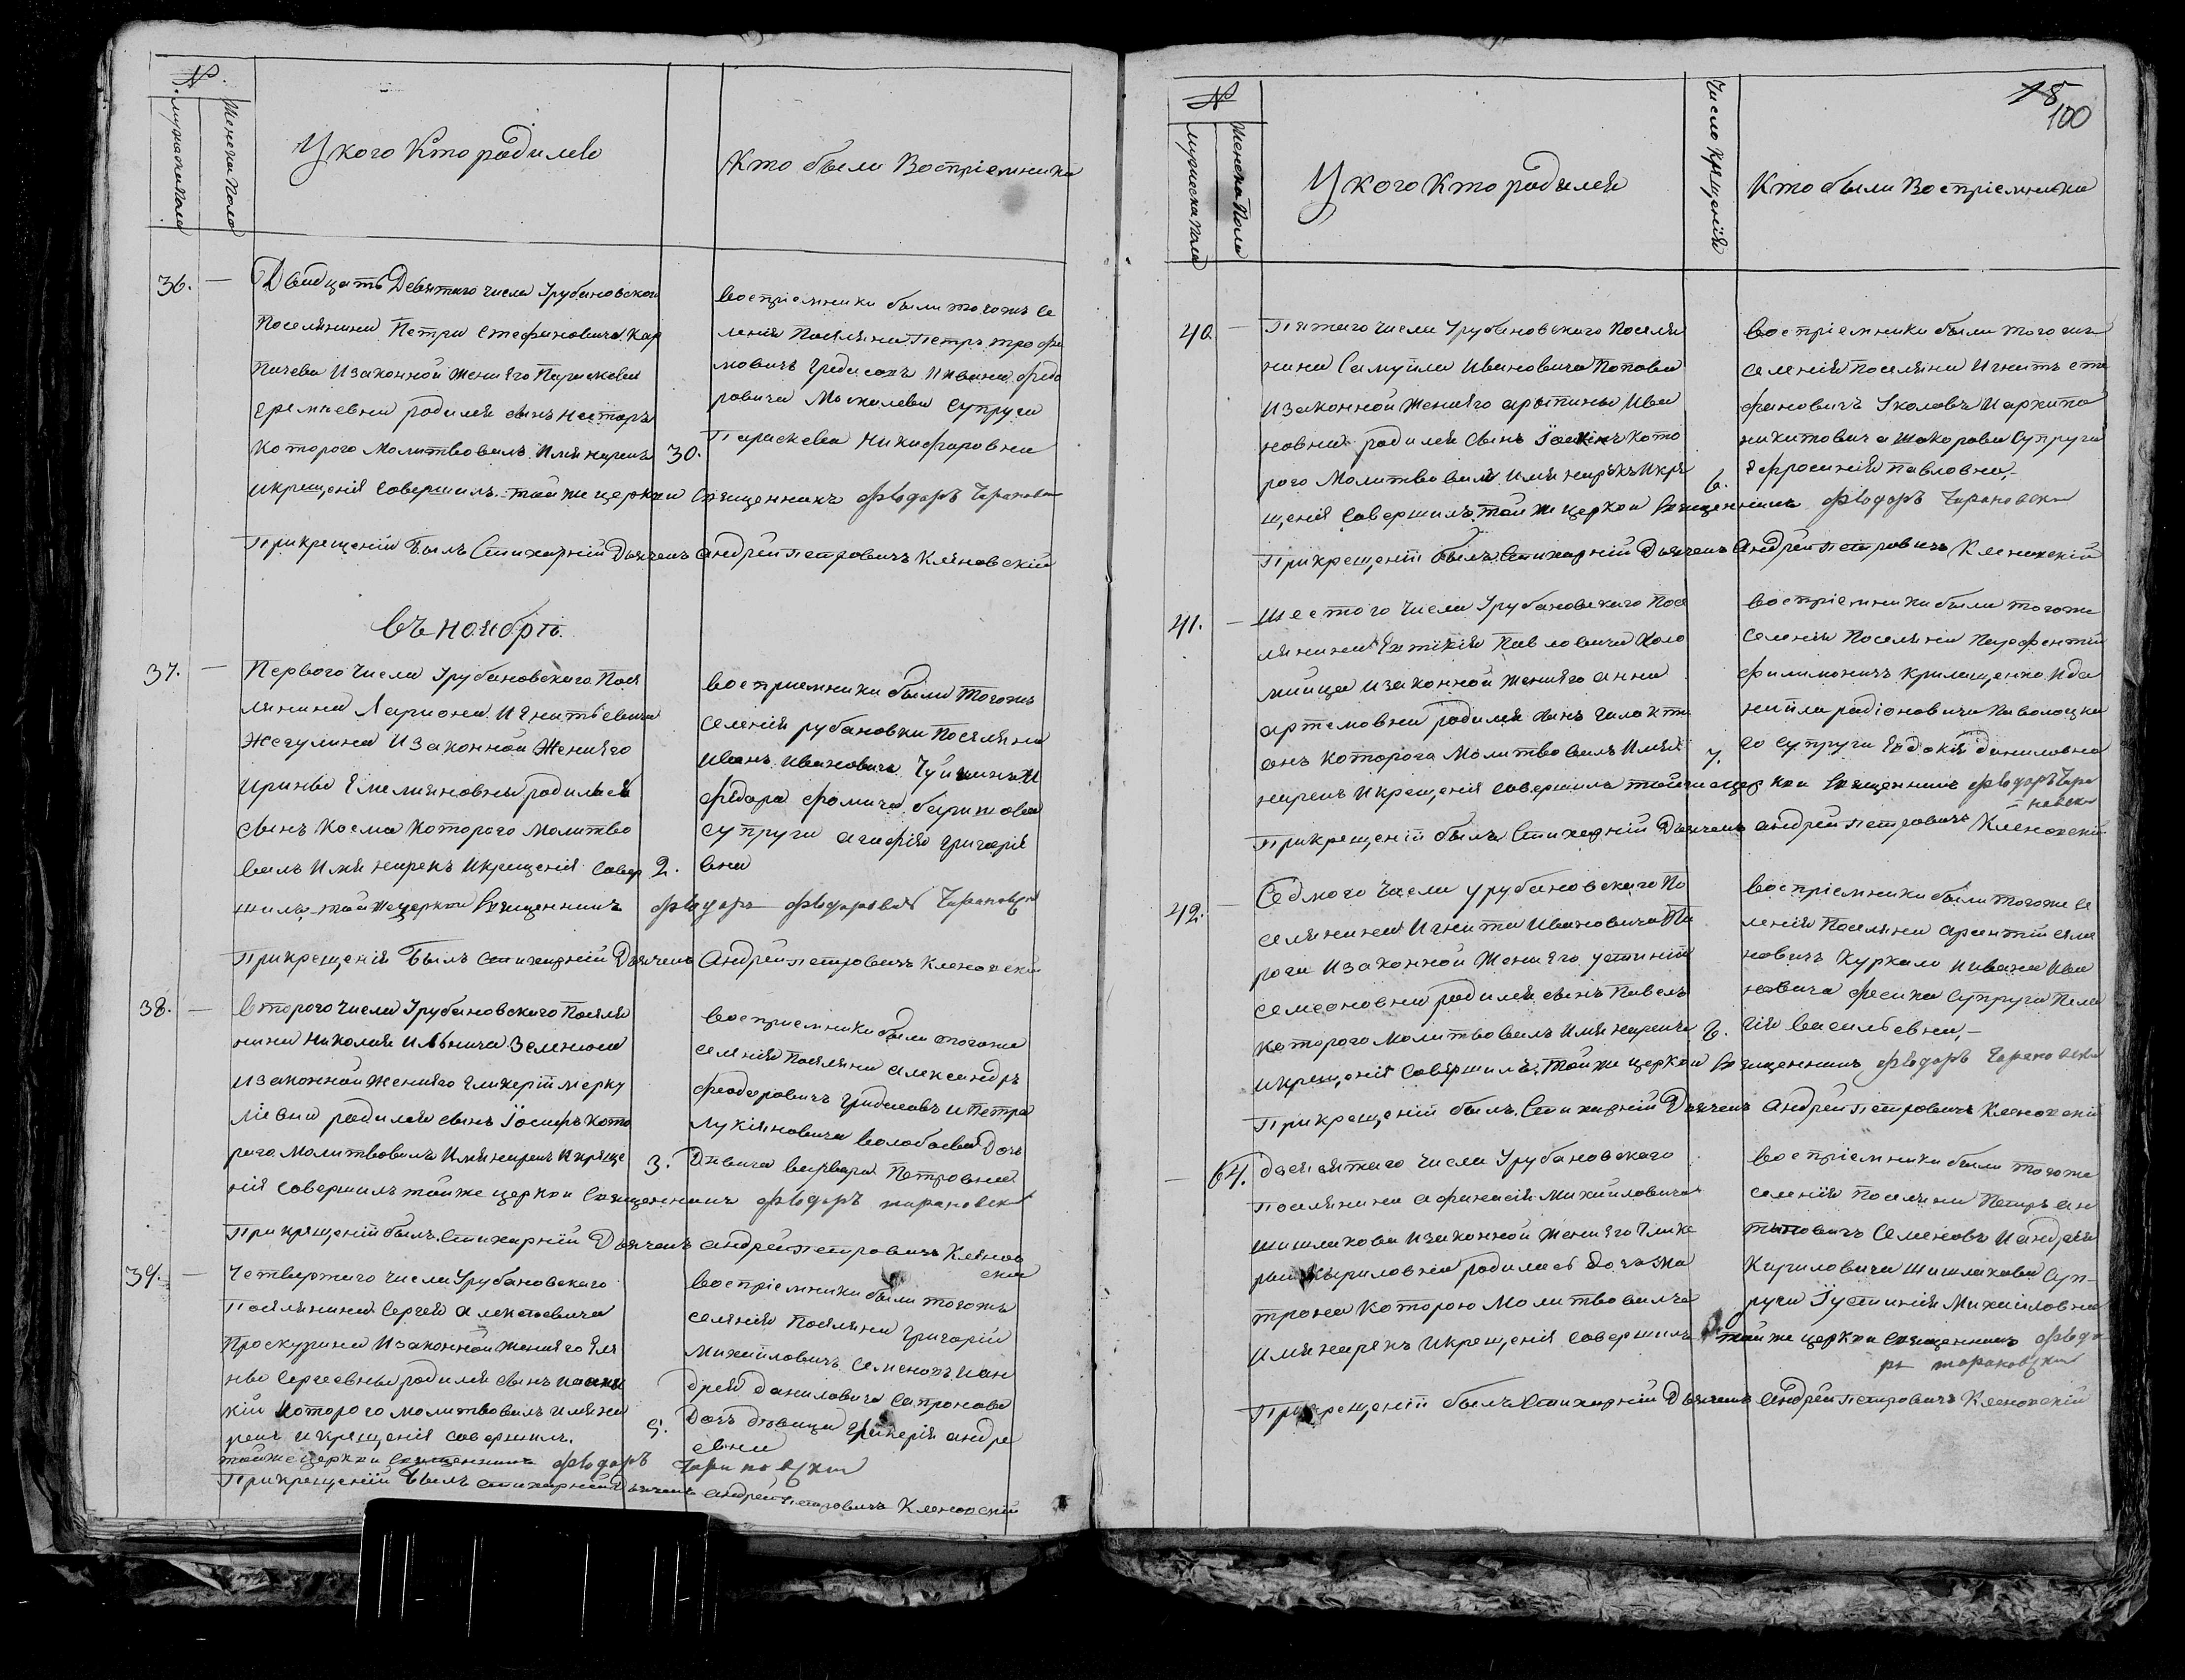 №
мужеска пола
женска пола
У кого кто родился
Кто были Восприемники
36. — Двадцать Девятаго числа Урубановскаго
Поселянина Петра Стефановича Кар
пичева И законной жены его Параскевы
родился сынъ Несторъ
Котораго Молитвовалъ Имя нарекъ 30.
Восприемники были тогожъ се
ления Поселянинъ Петръ трофи
мовичъ и Ивана федо
ровича супруга
Параскева Никифоровна
Икрещенія Совершилъ той же церкви Священникъ фѣодоръ Тарановски
При крещеніи Былъ Стихарній Дьячекъ Андрей Петровичъ Кленовскій
въ ноябрѣ.
37. — Перваго числа Урубановскаго Посе
лянина Лариона Игнатьевича
Жегулина И законной Жены его
Ирины Емелияновны родился
сынъ Косма Котораго Молитво
валъ Имя нарекъ Икрещенія Совер 2.
шилъ той же церкви Священникъ фѣодоръ фѣодоровъ Тарановски
восприемники были Тогожъ
селенія рубановки Поселянинъ
Иванъ Ивановичъ и
федора фомича баришова
супруга агафія григорие
вна
При крещеніи Былъ стихарній Дьячекъ Андрей Петровичъ Кленовскій
38. — Втораго числа Урубановскаго Поселя
нина Николая Ильича
И законной Жены его Гликеріи Мерку
ліевны родился сынъ Іосифъ Кото
раго Молитвовалъ Имя нарекъ Икреще 3.
нія Совершилъ той же церкви Священникъ фѣодоръ тарановски
восприемники были тогожъ
селенія Поселянинъ Александръ
феодоровичъ и Петра
лукіяновича Волобоева Дочь
Дѣвица варвара Петровна
При крещеніи былъ Стихарній Дьячекъ андрей Петровичъ Кленов
ски
39. — Четвертаго числа Урубановскаго
Поселянина Сергея Алексѣевича
Проскурина И законной жены его Еле
ны Сергеевны родился сынъ
кій Котораго молитвовалъ имя на
рекъ и крещенія совершилъ 5.
той же церкви Священникъ фѣодоръ Тарановски
восприемники были тогожъ
селенія Поселянинъ Григорій
Михайловичъ Семеновъ и ан
дрея даниловича Сапронова
Дочь дѣвица гликерія андре
евна
При крещеніи Былъ стихарній Дьячекъ андрей Петровичъ Кленовскій
15
100
№
мужеска пола
женска пола
У кого кто родился
Число крещенія
Кто были Восприемники
40. — Пятаго числа Урубановскаго Поселя
нина Самуйла Ивановича Попова
И законной жены его Ива
новны родился Сынъ кото
раго Молитвовалъ Имя нарекъ Икре 6.
щенія Совершилъ той же церкви Священникъ фѣодоръ Тарановски
Восприемники были тогожъ
селенія поселянинъ Игнатъ сте
фановичъ и архипа
никитовича супруга
Ефросинія Павловна
При крещеніи былъ Стихарній Дьячекъ Андрей Петровичъ Кленовскій
41. — Шестого числа Урубановскаго Посе
лянина Павловича Коло
мийца И законной жены его анны
артемовны родился сынъ галакти
онъ котораго Молитвовалъ Имя 7.
нарекъ Икрещенія совершилъ той же церкви Священникъ фѣодоръ Тара
новски
восприемники были тогоже
селенія Поселянинъ Парфентій
филимоничъ и да
нила радіоновича
го супруга Евдокія даниловна
При крещеніи былъ Стихарній Дьячекъ андрей Петровичъ Кленовскій
42. — Седмого числа Урубановскаго По
селянина Игната Ивановича
И законной Жены его устиніи
семеоновны родился сынъ Павелъ
Котораго молитвовалъ Имя нарекъ
Икрещенія Совершилъ той же церкви Священникъ фѣодоръ Тарановски
восприемники были тогоже се
ленія Поселянинъ
новичъ и Ивана Ива
новича супруга Пела
гія васильевна
При крещеніи былъ Стихарній Дьячекъ Андрей Петровичъ Кленовскій
— 64. числа Урубановскаго
Поселянина афанасія Михайловича
Шишлакова И законной жены его Глике
ріи Кириловны родилась Дочь Ма
трона Которою Молитвовалъ
Имя нарекъ Икрещенія совершилъ той же церкви Священникъ фѣодо
ръ тарановски
восприемники были тогоже
селенія поселянинъ Петръ ан
Семеновъ и андрея
Кириловича Шишлакова суп
руга Іустинія Михайловна
При крещеніи былъ Стихарній Дьячекъ Андрей Петровичъ Кленовскій